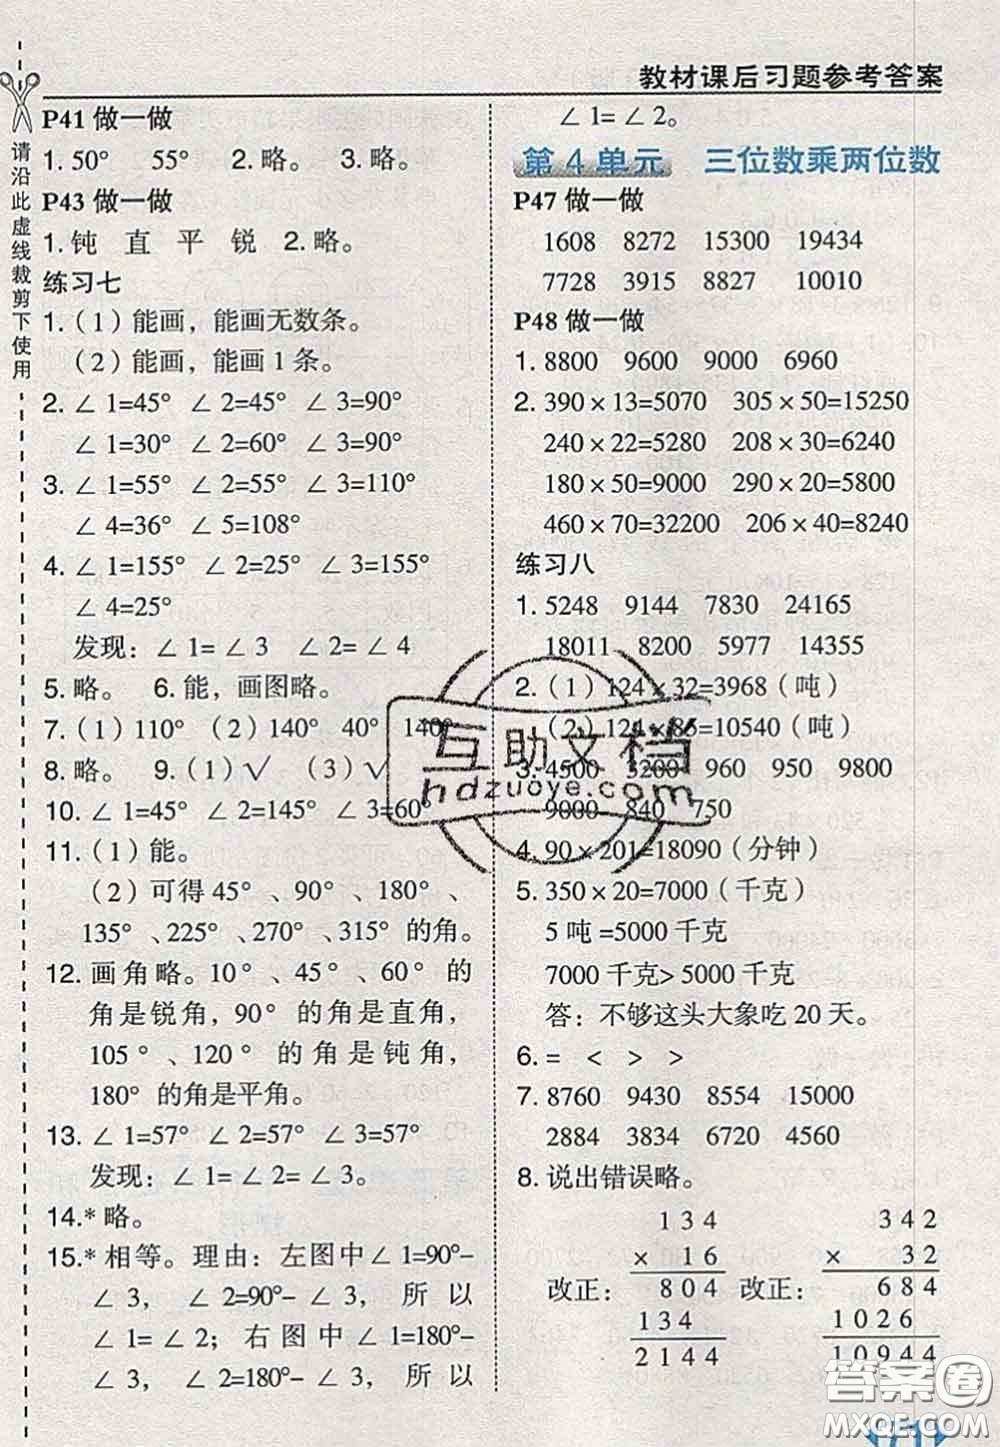 教材课后习题参考答案
请沿此虚线裁剪下使用
P41 做一做
1. 50°　55°　2. 略。　3. 略。
P43 做一做
1. 钝　直　平　锐　2. 略。
练习七
1.（1）能画，能画无数条。
（2）能画，能画 1 条。
2. ∠1=45°　∠2=45°　∠3=90°
∠1=30°　∠2=60°　∠3=90°
3. ∠1=55°　∠2=55°　∠3=110°
∠4=36°　∠5=108°
4. ∠1=155°　∠2=25°　∠3=155°
∠4=25°
发现：∠1=∠3　∠2=∠4
5. 略。　6. 能，画图略。
7.（1）110°　（2）140°　40°　140°
8. 略。　9.（1）√　（3）√
10. ∠1=45°　∠2=145°　∠3=60°
11.（1）能。
（2）可得 45°、90°、180°、
135°、225°、270°、315°的角。
12. 画角略。10°、45°、60°的
角是锐角，90°的角是直角，
105°、120°的角是钝角，
180°的角是平角。
13. ∠1=57°　∠2=57°　∠3=57°
发现：∠1=∠2=∠3。
14.* 略。
15.* 相等。理由：左图中∠1=90°-
∠3，∠2=90°-∠3，所以
∠1=∠2；右图中∠1=180°-
∠3，∠2=180°-∠3，所以
∠1=∠2。
第 4 单元　三位数乘两位数
P47 做一做
1608　8272　15300　19434
7728　3915　8827　10010
P48 做一做
1. 8800　9600　9000　6960
2. 390×13=5070　305×50=15250
240×22=5280　208×30=6240
180×50=9000　290×20=5800
460×70=32200　206×40=8240
练习八
1. 5248　9144　7830　24165
18011　8200　5977　14355
2.（1）124×32=3968（吨）
（2）124×85=10540（吨）
3. 4500　3200　960　950　9800
9000　840　750
4. 90×201=18090（分钟）
5. 350×20=7000（千克）
5 吨=5000 千克
7000 千克>5000 千克
答：不够这头大象吃 20 天。
6. =　<　>　>
7. 8760　9430　8554　15000
2884　3834　6720　4560
8. 说出错误略。
134　342
×16　×32
改正：804　改正：684
134　1026
2144　10944
互助文档
hdzuoye.com
答案圈
MXQE.COM